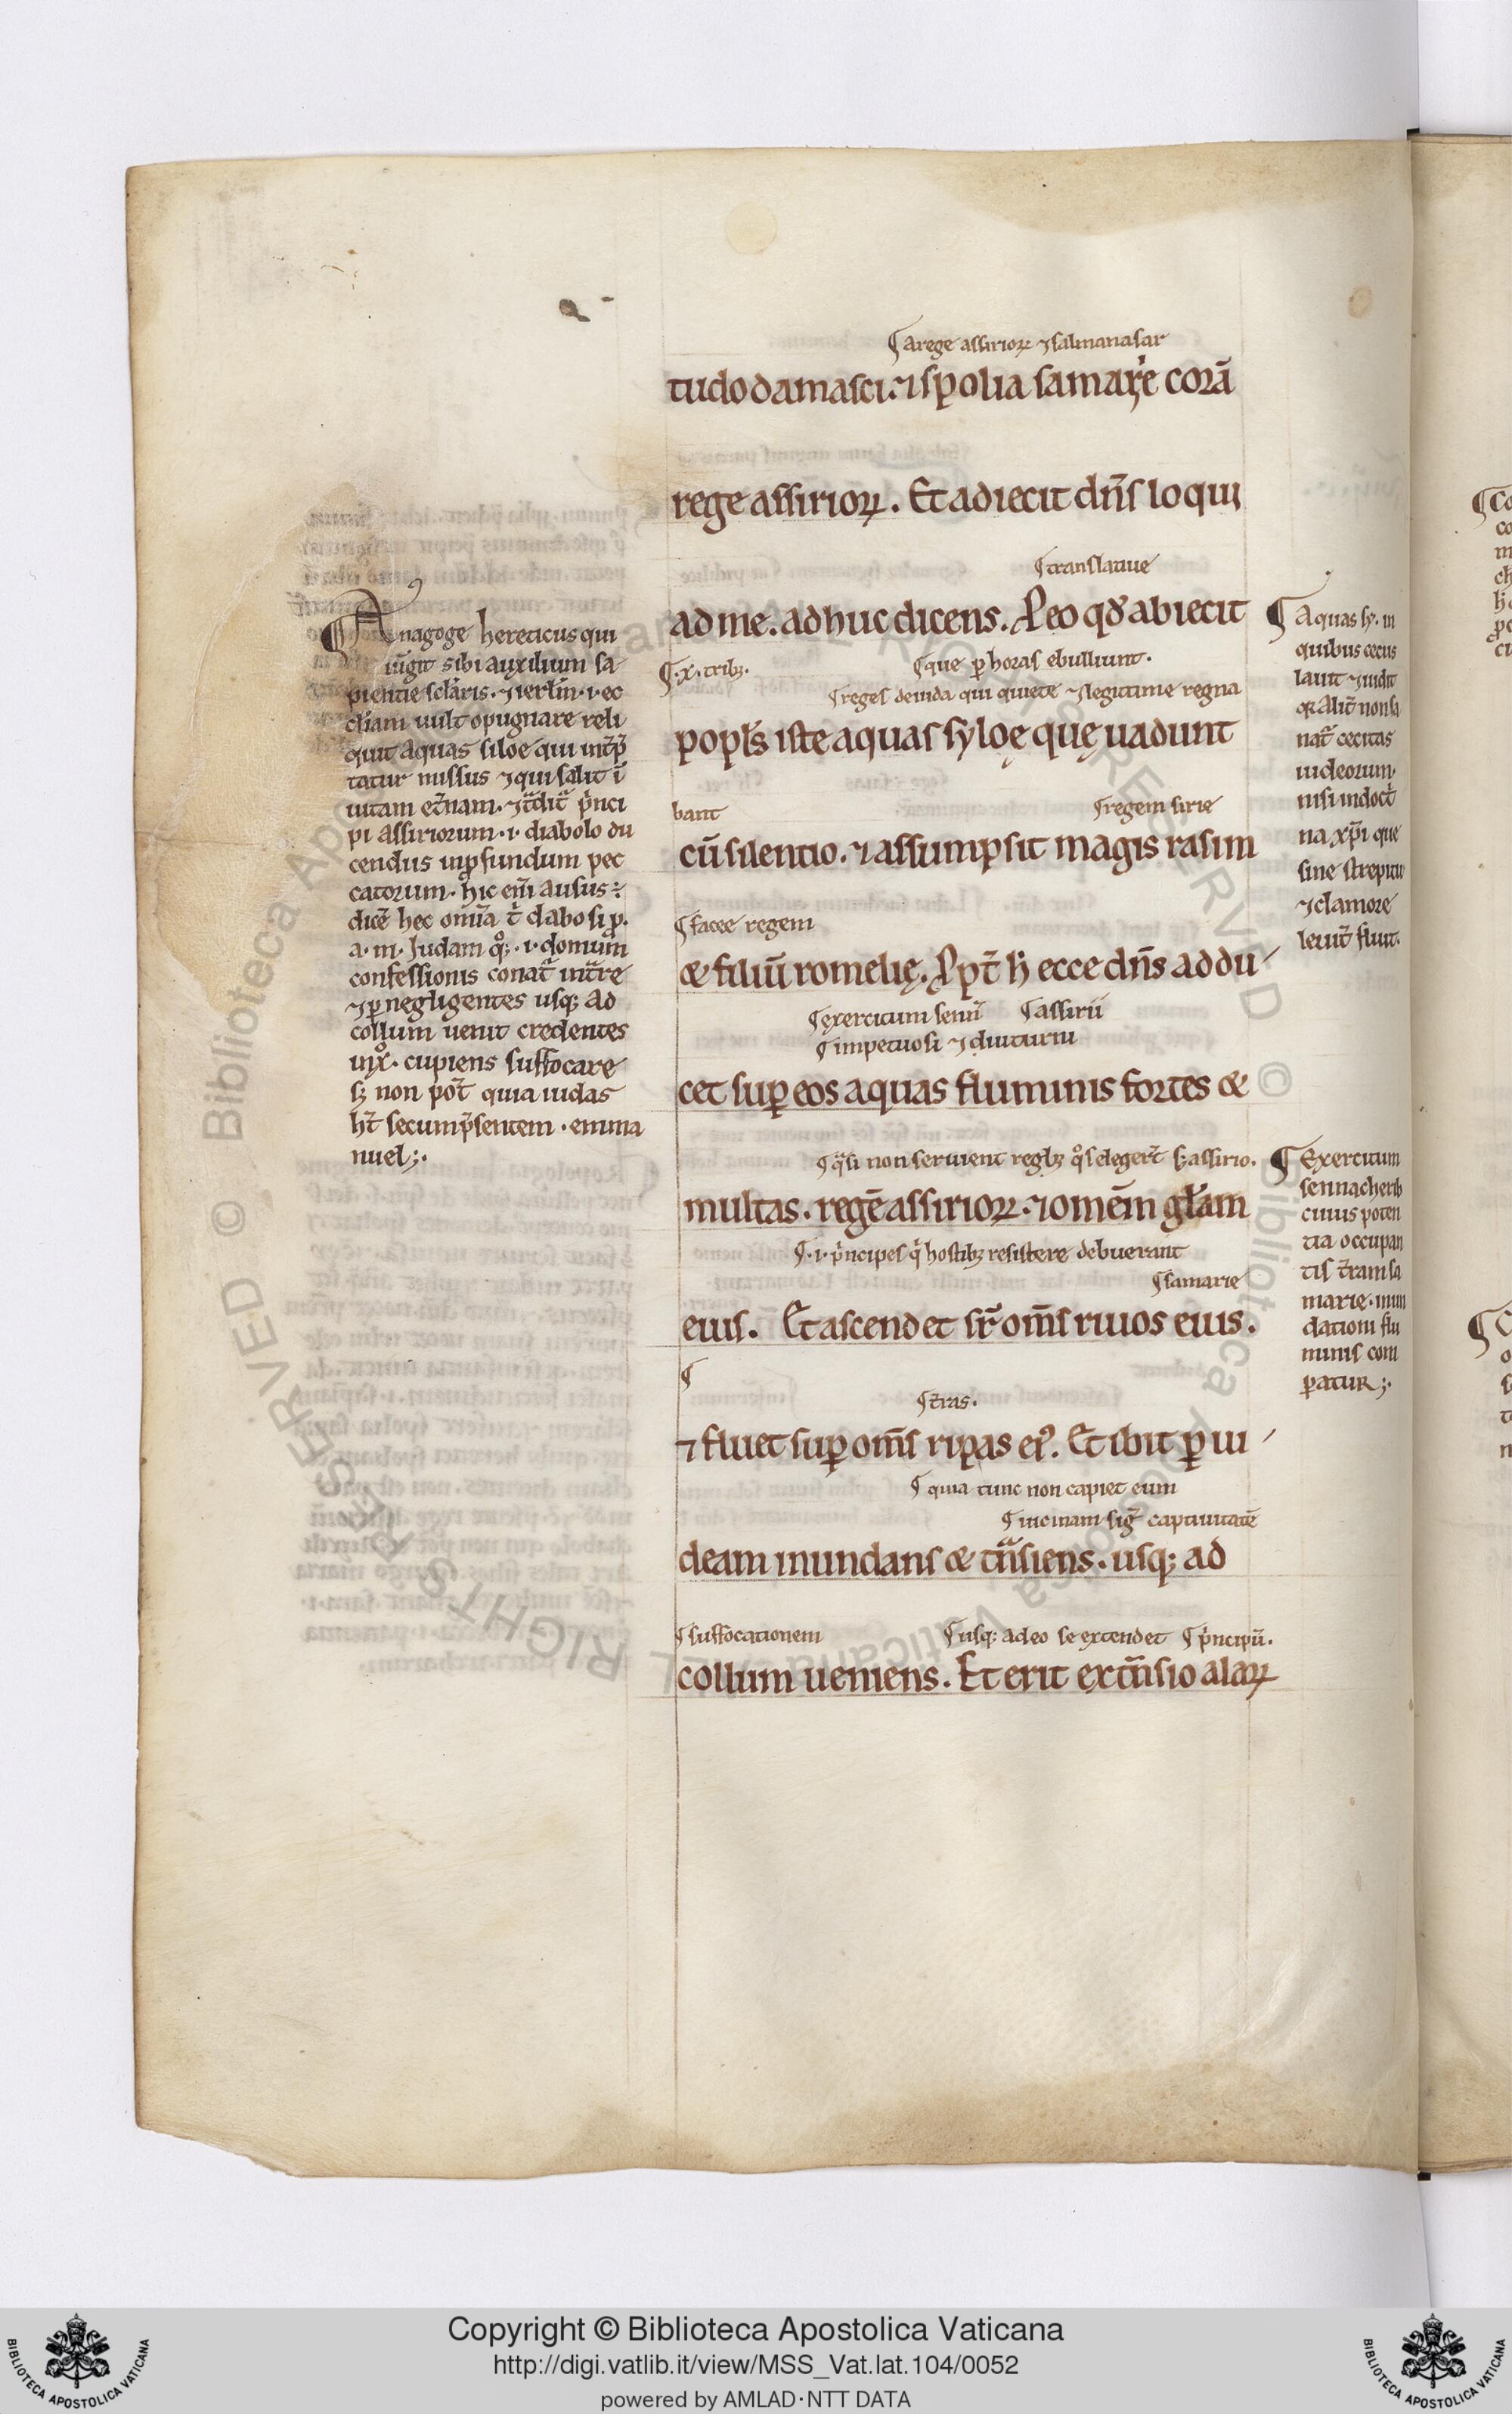 ¶ a rege assirioꝝ ⁊ salmanasar
tudo damasci. ⁊ spolia samarie corā
rege assirioꝝ. Et adiecit dn̄s loqui
¶ translatiue
ad me. adhuc dicens. Pro eo qd̛ abiecit
¶ .x. tribꝫ.
¶ que ꝑ horas ebulliunt.
¶ reges deiuda qui quiete ⁊ legitime regna
popl̄s iste aquas syloę quę uadunt
bant
¶ regem sirie
cū silentio. ⁊ assumpsit magis rasim
¶ facee regem
& filiū romelię. Ppt̄ h̄ ecce dn̄s addu
¶ exercitum senn̄
¶ assirii
¶ impetuosi ⁊ diuturni
cet suꝑ eos aquas fluminis fortes &
¶ q̄si non seruient regibꝫ q̊s elegert̄ sꝫ assirio.
multas. regē assirioꝝ. ⁊ omēm gl̄am
¶ .i. p̄ncipes q̄ hostibꝫ resistere debuerant
¶ samarie
eius. Et ascendet sr̄ om̄s riuos eius.
¶
¶ t̄ras.
⁊ fluet suꝑ om̄s ripas eiꝰ. Et ibit ꝑ iu
¶ quia tunc non capiet eum
¶ uicinam siḡt captiuitatē
deam inundans & tn̄siens. usqꝫ ad
¶ suffocationem
¶ usqꝫ adeo se extendet
¶ p̄ncipū.
collum ueniens. Et erit extēnsio alaꝝ
¶ Anagoge hereticus qui
iūgit sibi auxilium sa
pientie sclaris. ⁊ ierl̄m .i. ec
cl̄iam uult opugnare reli
quit aquas siloe qui int̄p̄
tatur missus ⁊ qui salit ī
uitam et̄nam. ⁊ t̄dit̄ p̄nci
pi assiriorum .i. diabolo du
cendus in ꝓfundum pec
catorum. hic eni̅ ausus ÷
dicē hec om̄ia t̄ dabo si p.
a. m. Iudam qꝫ .i. domum
confessionis conat̄ int̄re
⁊ ꝑ negligentes usqꝫ ad
collum uenit credentes
in xꝰ. cupiens suffocare
sꝫ non pot̄ quia iudas
ht̄ secum p̄sentem. emma
nuel;.
¶ Aquas sy. in
quibus cecus
lauit ⁊ uidit
qꝛ alit̄ non sa
nat̄ cecitas
iudeorum
nisi in doct̄
na xp̄i que
sine strepitu
⁊ clamore
leuit̄ fluit.
¶ Exercitum
sennacherib
cuius poten
tia occupan
tis t̄ram sa
marie. inun
dationi flu
minis com
paratur;.
Copyright © Biblioteca Apostolica Vaticana
http://digi.vatlib.it/view/MSS_Vat.lat.104/0052
powered by AMLAD·NTT DATA
BIBLIOTECA APOSTOLICA VATICANA
BIBLIOTECA APOSTOLICA VATICANA